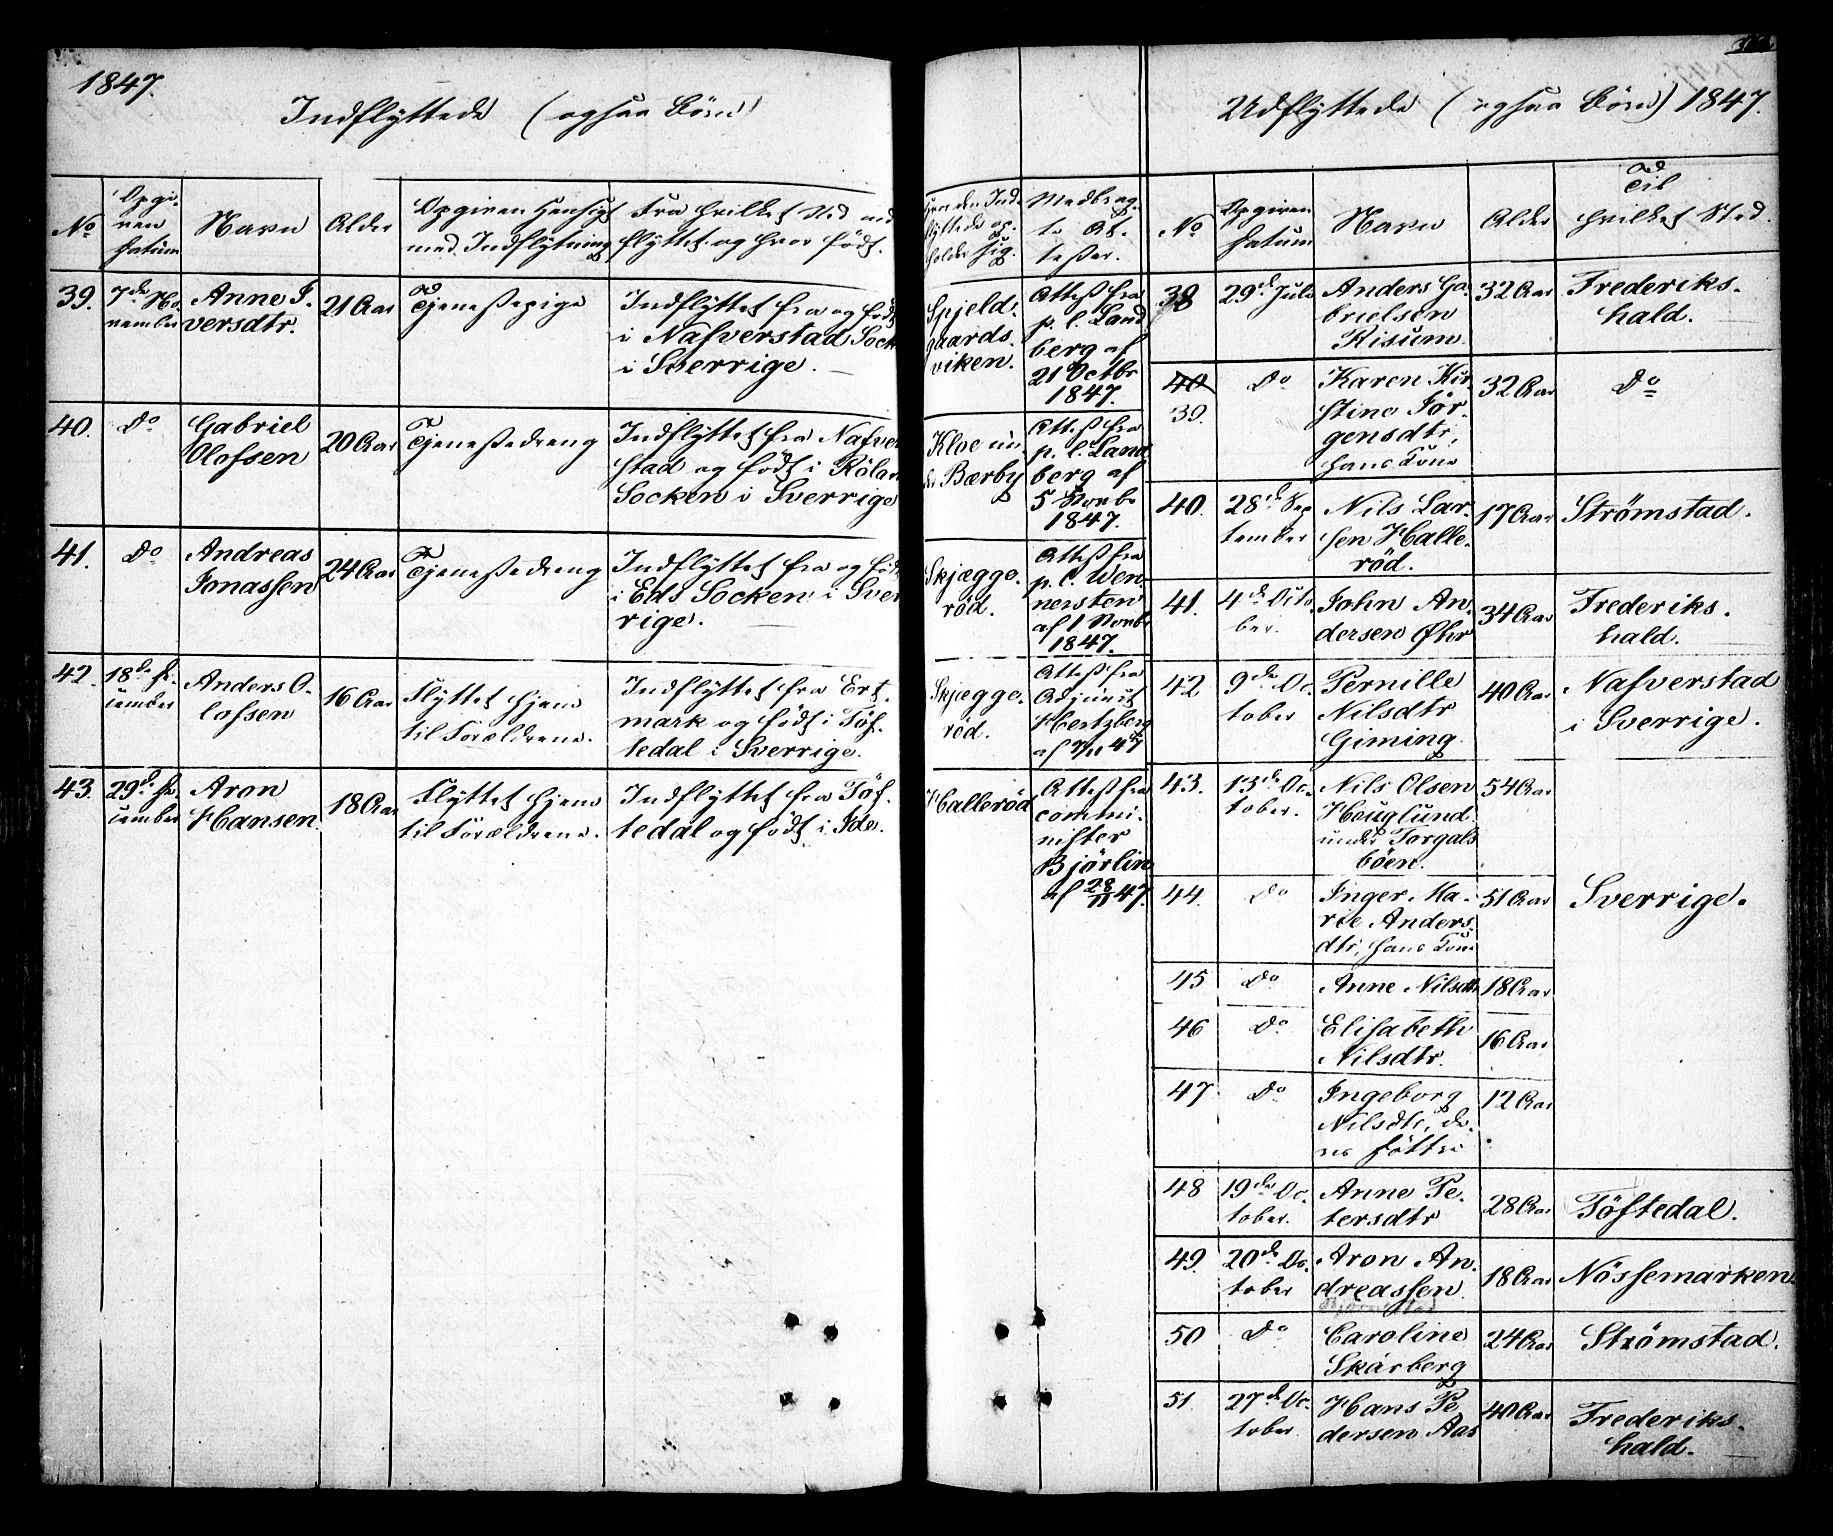 1847.
Indflyttede (ogsaa Børn)
No
Opgi-
ven
Datum
Navn
Alder
Opgiven Hensigt
med Indflytning
Fra hvilket Sted ind-
flyttet og hvor født.
Hvor den Ind-
flyttede op-
holder sig.
Medbrag-
te At-
tester.
39.
7de No-
vember
Anne I-
versdtr.
21 Aar
Tjenestepige
Indflyttet fra og født
i Nafverstad Sock
i Sverrige.
Spjeld-
gaards-
viken.
Attest fra
p. l. Land
berg af
21 Octbr
1847.
40.
Do
Gabriel
Olofsen
20 Aar
Tjenestedreng
Indflyttet fra Nafver
stad og født i Rölan
Socken i Sverrige
Kloe un
der Bærby
Attest fra
p. l. Land
berg af
5 Novbr
1847.
41.
Do
Andreas
Jonassen
24 Aar
Tjenestedreng
Indflyttet fra og født
i Eds Socken i Sver
rige.
Skjægge-
röd.
Attest fra
p. l. Wen-
nersten
af 1 Novbr
1847.
42.
18de De-
cember
Anders O-
lofsen
16 Aar
Flyttet hjem
til Forældrene.
Indflyttet fra Ert-
mark og født i Töf-
tedal i Sverrige.
Skjægge-
röd.
Attest fra
Adjunct
Hertzberg
af 7/11 47
43.
29de De-
cember
Aron
Hansen
18 Aar
Flyttet hjem
til Forældrene.
Indflyttet fra Töf-
tedal og født i Ide.
Halleröd
Attest fra
commi-
nister
Björlin
af 28/11 47.
Udflyttede (ogsaa Börn) 1847.
No
Opgiven
Datum
Navn
Alder
Til
hvilket Sted.
38
29de Juli
Anders Ga-
brielsen
Risum
32 Aar
Frederiks-
hald.
40
39.
Do
Karen Kir-
stine Jör-
gensdtr,
hans Kone
32 Aar
Do
40.
28de Sep
tember
Nils Lar-
sen Halle-
röd.
17 Aar
Strömstad.
41.
4de Octo
ber.
John An-
dersen Øhr
34 Aar
Frederiks-
hald.
42
9de Oc-
tober
Pernille
Nilsdtr
Giming
40 Aar
Nafverstad
i Sverrige.
43.
13de Oc-
tober.
Nils Olsen
Houglund
under Torgals
böen.
54 Aar
44.
Do
Inger Ma-
rie Anders-
dtr, hans Kone
51 Aar
Sverrige.
45
Do
Anne Nilsdtr
18 Aar
46
Do
Elisabeth
Nilsdtr.
16 Aar
47
Do
Ingeborg
Nilsdtr, de-
res Döttre
12 Aar
48
19de Oc-
tober.
Anne Pe-
tersdtr
28 Aar
Töftedal.
49.
20de Oc-
tober
Aron An-
dreassen
18 Aar
Nössemarken.
50
Do
Caroline
Skårberg
24 Aar
Strömstad.
51.
27de Oc-
tober
Hans Pe
dersen Aas
40 Aar
Frederiks-
hald.